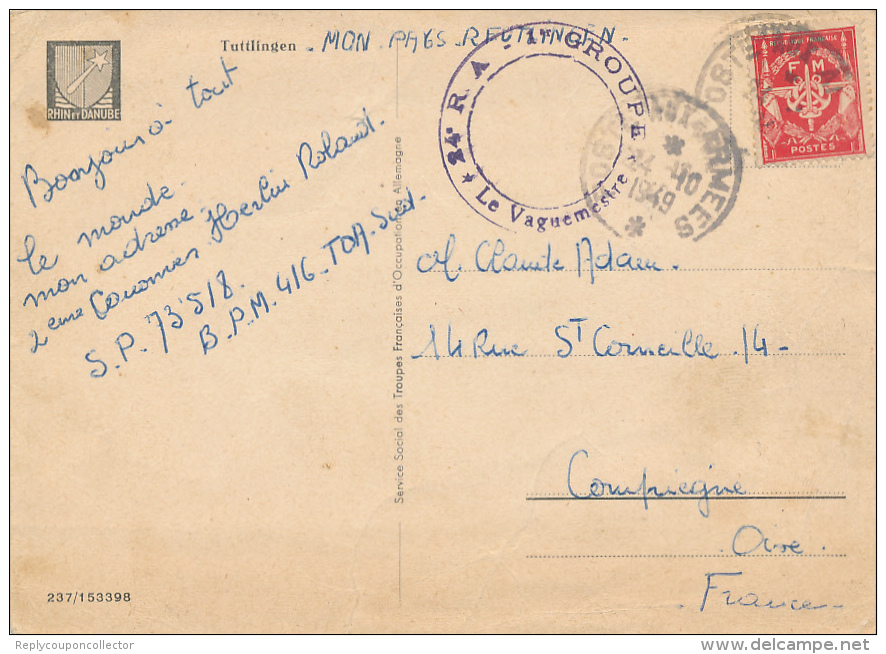 Tuttlingen - MON PAYS REUTLINGEN -
RHIN ET DANUBE
Bonjour à tout
le monde.
mon adresse.
2eme Canonnier Herlin Roland.
S.P. 73518.
B.P.M. 416 - TOA. Sud.
237/153398
Service Social des Troupes Françaises d'Occupation en Allemagne
24e R.A. - 1er GROUPE
* Le Vaguemestre *
POSTE AUX ARMEES
24-10
1949
REPUBLIQUE FRANÇAISE
F M
POSTES
M. Claude Adam.
14 Rue St Corneille 14-
Compiegne
Oise.
- France -
Replycouponcollector
delcampe.net